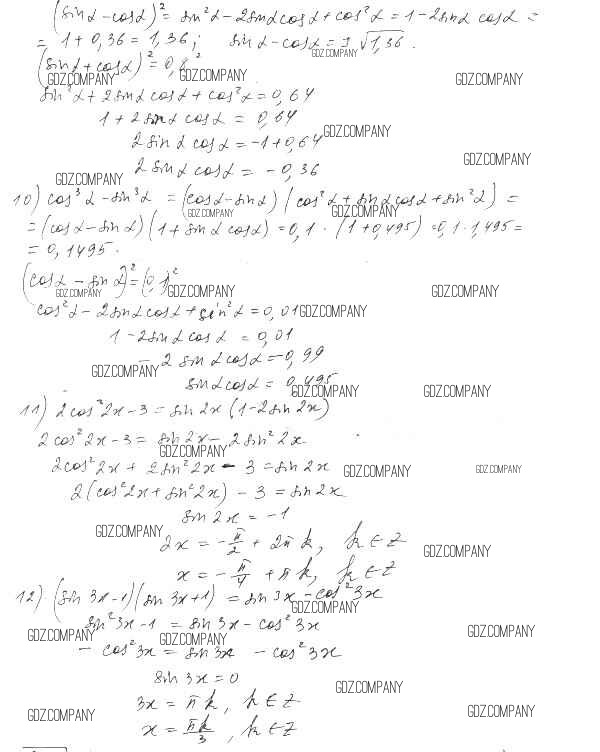 (sinα - cosα)² = sin²α - 2sinα cosα + cos²α = 1 - 2sinα cosα =
= 1 + 0,36 = 1,36; sinα - cosα = ± √1,36.
GDZ.COMPANY
(sinα + cosα)² = 0,8²
GDZ.COMPANY GDZ.COMPANY GDZ.COMPANY
sin²α + 2sinα cosα + cos²α = 0,64
1 + 2sinα cosα = 0,64
GDZ.COMPANY
2sinα cosα = -1 + 0,64
GDZ.COMPANY
2sinα cosα = -0,36
GDZ.COMPANY
10) cos³α - sin³α = (cosα - sinα)(cos²α + sinα cosα + sin²α) =
GDZ.COMPANY GDZ.COMPANY
= (cosα - sinα)(1 + sinα cosα) = 0,1 · (1 + 0,495) = 0,1 · 1,495 =
= 0,1495.
(cosα - sinα)² = (0,1)²
GDZ.COMPANY GDZ.COMPANY GDZ.COMPANY
cos²α - 2sinα cosα + sin²α = 0,01
GDZ.COMPANY
1 - 2sinα cosα = 0,01
- 2 sinα cosα = -0,99
GDZ.COMPANY
sinα cosα = 0,495
GDZ.COMPANY GDZ.COMPANY
11) 2cos²2x - 3 = sin2x (1 - 2sin2x)
2cos²2x - 3 = sin2x - 2sin²2x
GDZ.COMPANY
2cos²2x + 2sin²2x - 3 = sin2x
GDZ.COMPANY GDZ.COMPANY
2(cos²2x + sin²2x) - 3 = sin2x
sin2x = -1
GDZ.COMPANY
2x = -π/2 + 2πk, k∈Z
GDZ.COMPANY
x = -π/4 + πk, k∈Z
12) (sin3x - 1)(sin3x + 1) = sin3x - cos²3x
GDZ.COMPANY
sin²3x - 1 = sin3x - cos²3x
GDZ.COMPANY GDZ.COMPANY GDZ.COMPANY
- cos²3x = sin3x - cos²3x
sin3x = 0
GDZ.COMPANY
3x = πk, k∈Z
GDZ.COMPANY GDZ.COMPANY
x = πk/3, k∈Z